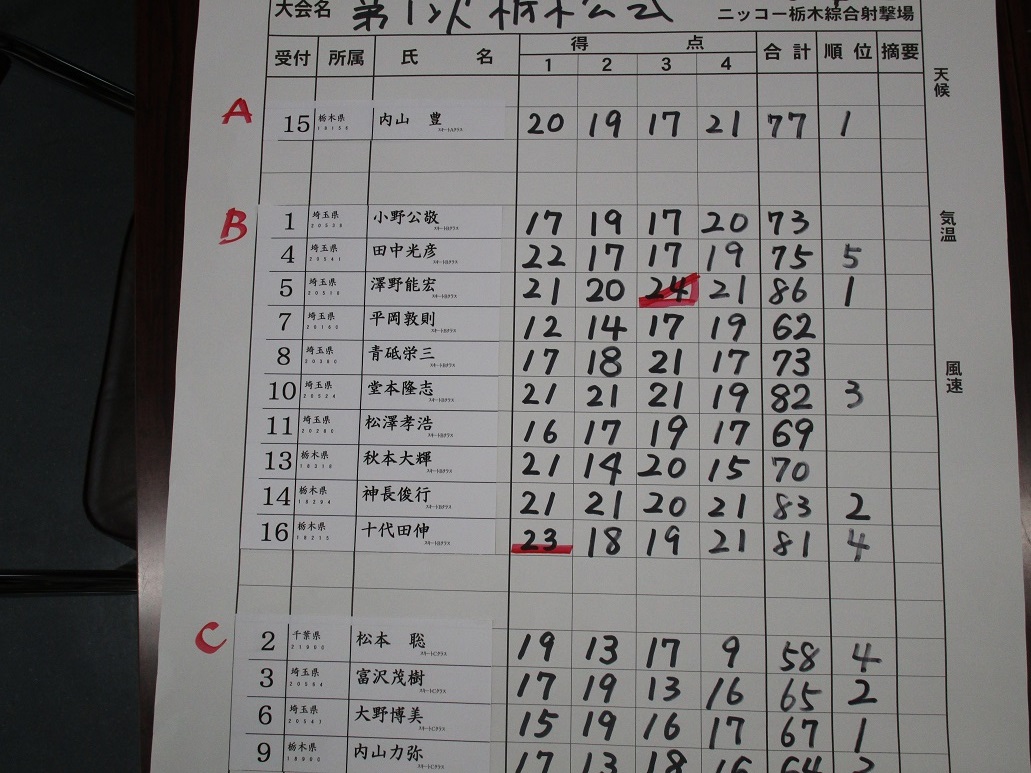 大会名 第1次栃木公式 ニッコー栃木綜合射撃場
受付 所属 氏 名 得 点 合計 順位 摘要
1 2 3 4
天候
A
15 栃木県 内山 豊 20 19 17 21 77 1
B
気温
1 埼玉県 小野公敬 17 19 17 20 73
4 埼玉県 田中光彦 22 17 17 19 75 5
5 埼玉県 澤野能宏 21 20 24 21 86 1
7 埼玉県 平岡敦則 12 14 17 19 62
8 埼玉県 青砥栄三 17 18 21 17 73
風速
10 埼玉県 堂本隆志 21 21 21 19 82 3
11 埼玉県 松澤孝浩 16 17 19 17 69
13 栃木県 秋本大輝 21 14 20 15 70
14 栃木県 神長俊行 21 21 20 21 83 2
16 栃木県 十代田伸 23 18 19 21 81 4
C
2 千葉県 松本 聡 19 13 17 9 58 4
3 埼玉県 富沢茂樹 17 19 13 16 65 2
6 埼玉県 大野博美 15 19 16 17 67 1
9 栃木県 内山力弥 17 13 18 16 64